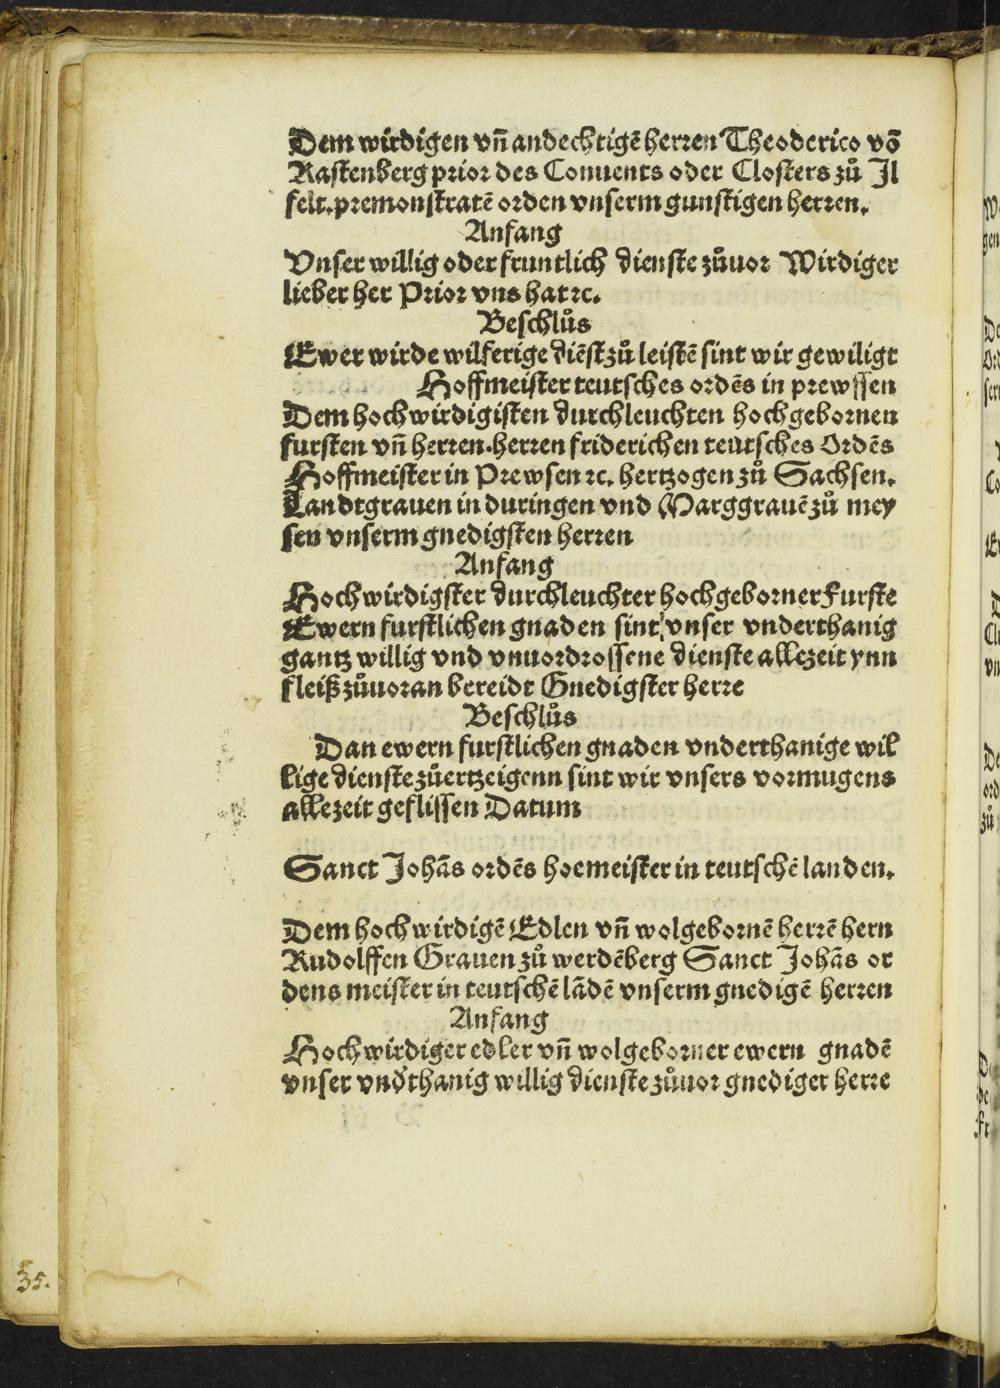 Dem wirdigen vñ andechtigẽ herren Theoderico võ
Rastenberg prior des Conuents oder Closters zů Jl
felt. premonstratẽ orden vnserm gunstigen herren.
Anfang
Vnser willig oder fruntlich dienste zůuor Wirdiger
lieber her Prior vns hat ꝛc.
Beschlůs
Ewer wirde wilferige diẽst zů leistẽ sint wir gewiligt
Hoffmeister teutsches ordẽs in prewssen
Dem hochwirdigisten durchleuchten hochgebornen
fursten vñ herren. herren friderichen teutsches Ordẽs
Hoffmeister in Prewsen ꝛc. hertzogen zů Sachsen.
Landtgrauen in duringen vnd Marggrauẽ zů mey
sen vnserm gnedigsten herren
Anfang
Hochwirdigster durchleuchter hochgeborner Furste
Ewern furstlichen gnaden sint vnser vnderthanig
gantz willig vnd vnuordrossene dienste allezeit ynn
fleiß zůuoran bereidt Gnedigster herre
Beschlůs
Dan ewern furstlichen gnaden vnderthanige wil
lige dienste zůertzeigenn sint wir vnsers vormugens
allezeit geflissen Datum
Sanct Johãs ordẽs hoemeister in teutschẽ landen.
Dem hochwirdigẽ Edlen vñ wolgebornẽ herrẽ hern
Rudolffen Grauen zů werdẽberg Sanct Johãs or
dens meister in teutschẽ lãdẽ vnserm gnedigẽ herren
Anfang
Hochwirdiger edler vñ wolgeborner ewern gnadẽ
vnser vnd'thanig willig dienste zůuor gnediger herre
35.